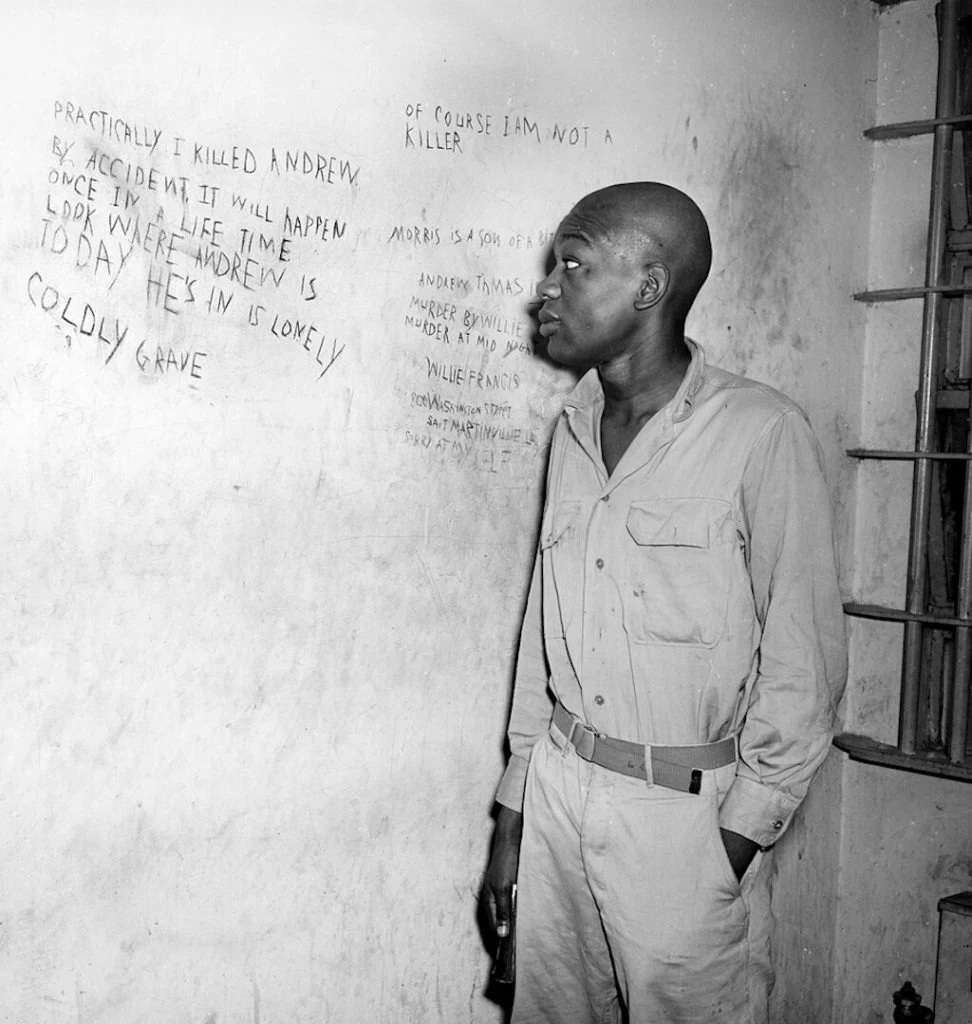 PRACTICALLY I KILLED ANDREW
BY ACCIDENT. IT WILL HAPPEN
ONCE IN A LIFE TIME
LOOK WHERE ANDREW IS
TO DAY HE'S IN IS LONELY
COLDLY GRAVE
OF COURSE I AM NOT A
KILLER
MORRIS IS A SON OF A
ANDREW THMAS
MURDER BY WILLIE
MURDER AT MID
WILLIE FRANCIS
800 WASHINGTON STREET
SAIT MARTINVILLE
SORRY AT MY SELF